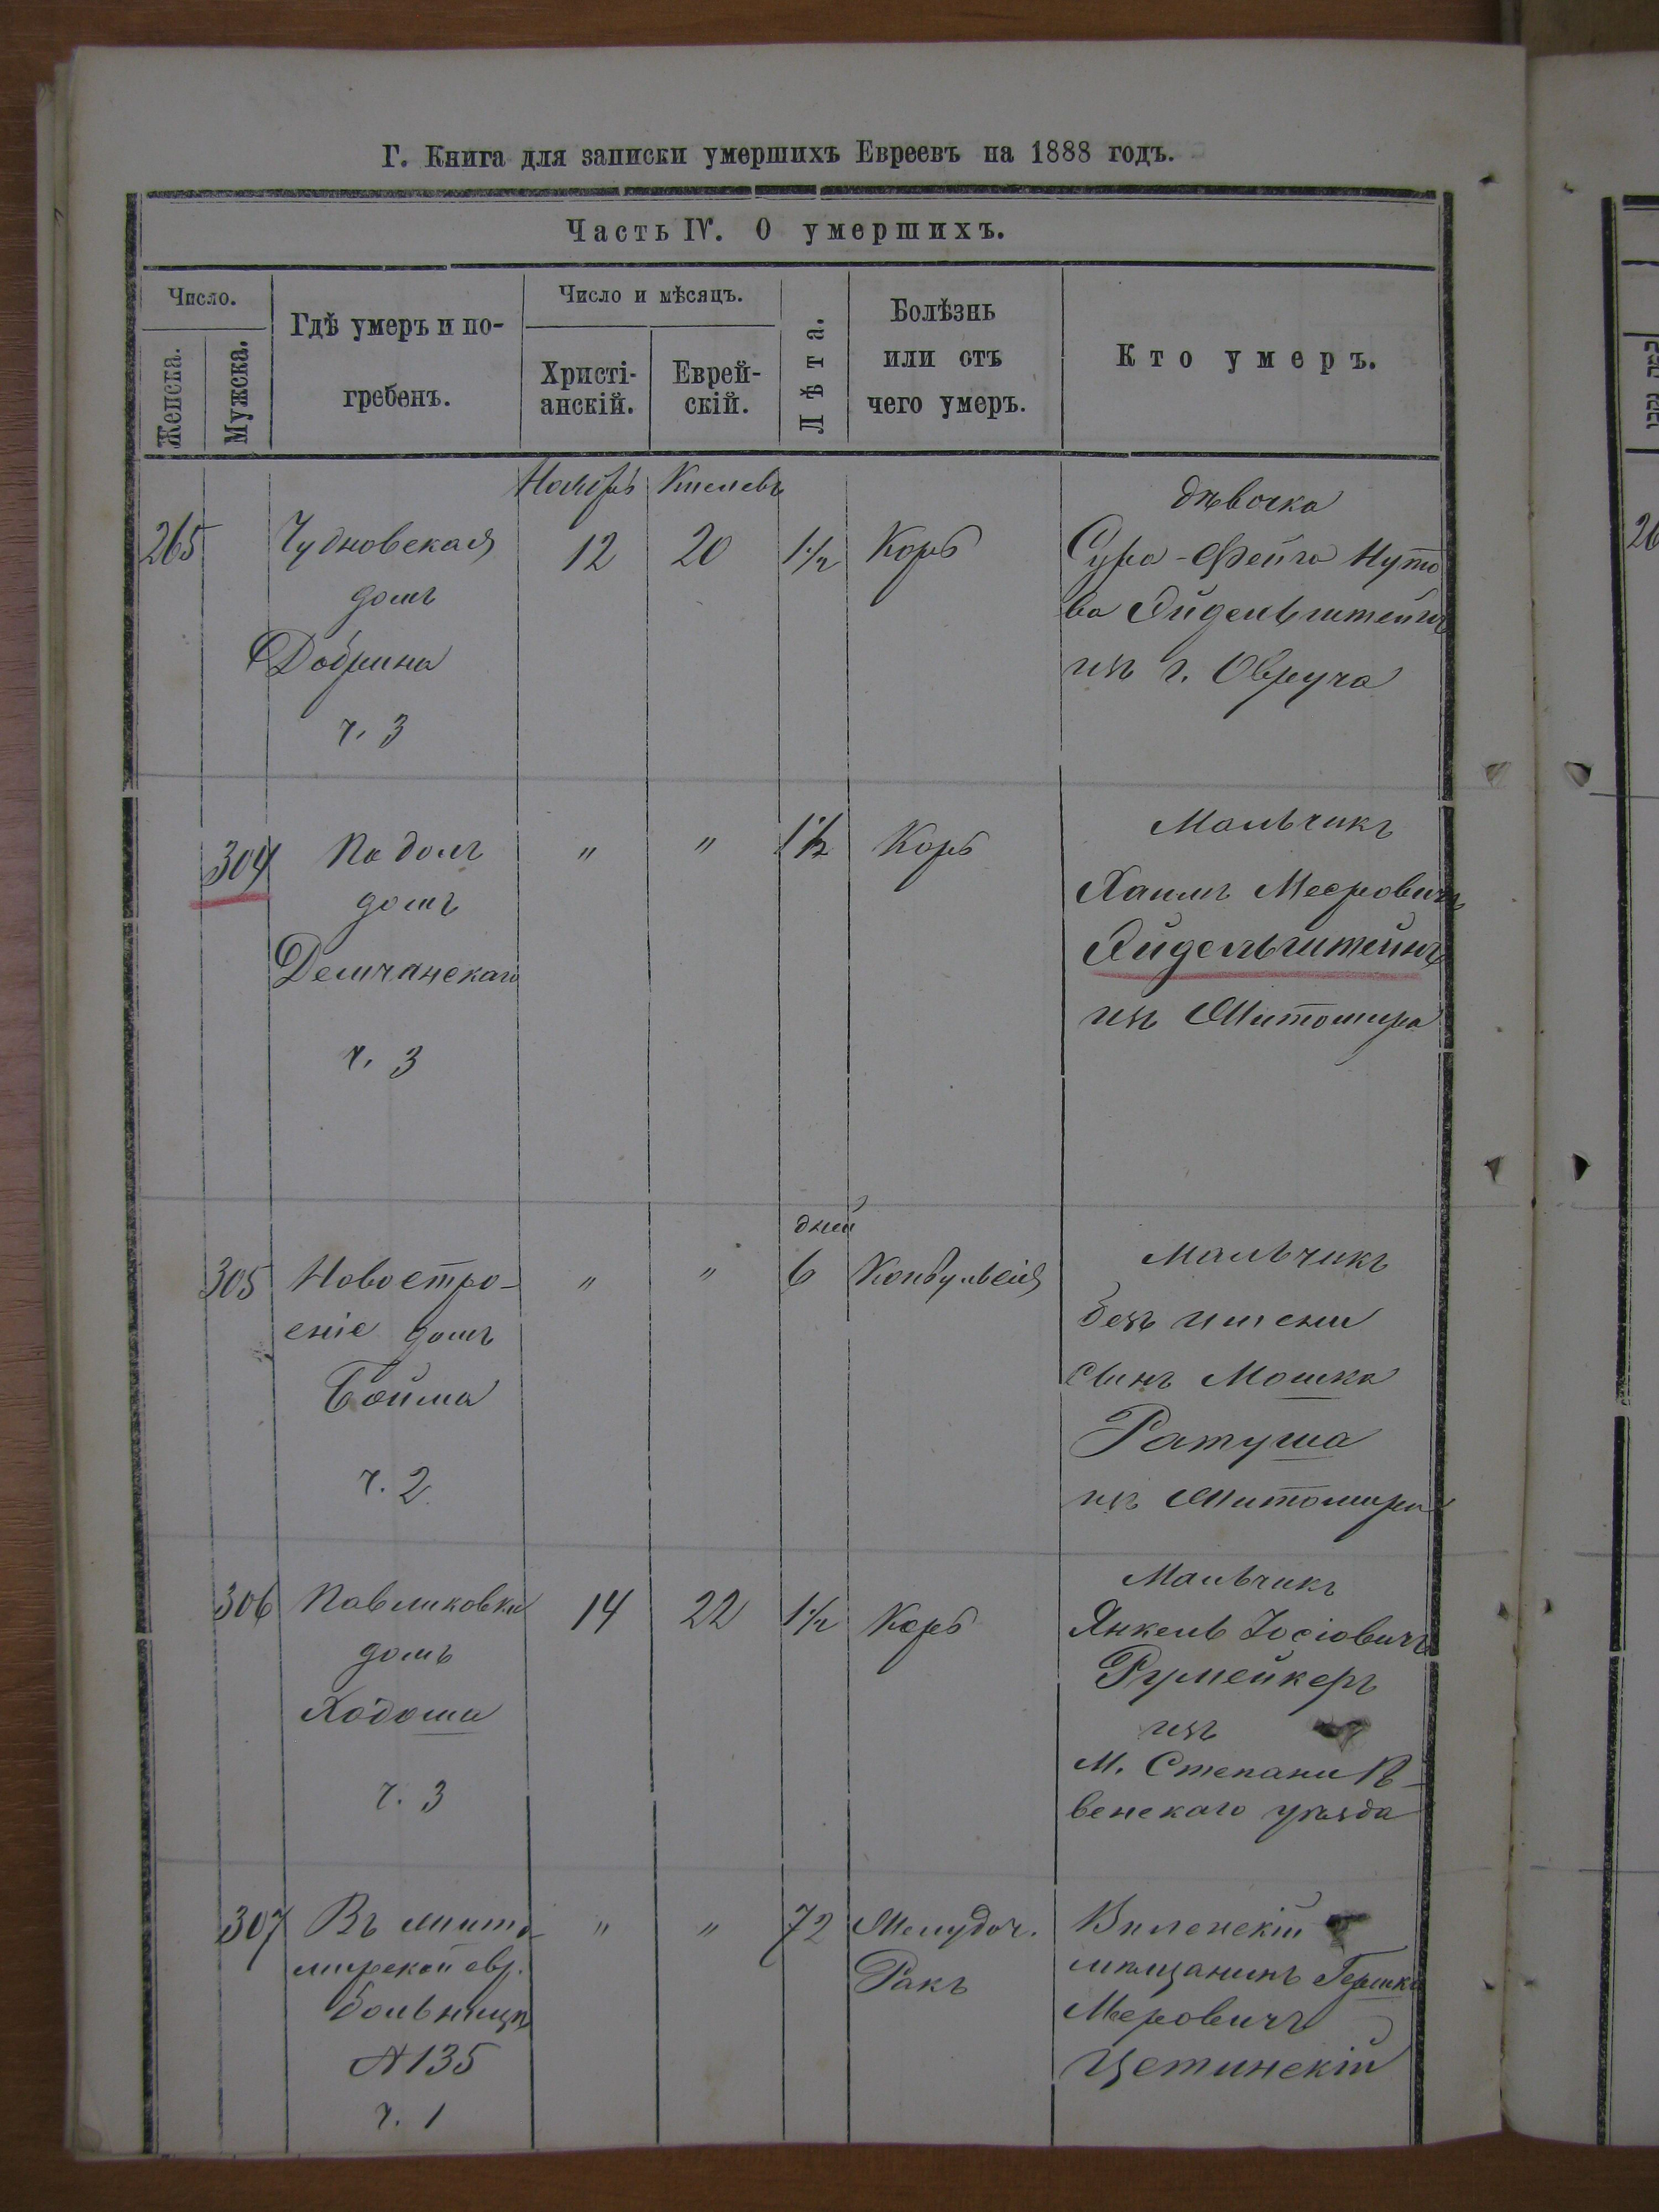 Г. Книга для записки умершихъ Евреевъ на 1888 годъ.
Часть IV. О умершихъ.
Число.
Женска.
Мужска.
Гдѣ умеръ и по-
гребенъ.
Число и мѣсяцъ.
Христі-
анскій.
Еврей-
скій.
Лѣта.
Болѣзнь
или отъ
чего умеръ.
Кто умеръ.
Ноябрь Кислевъ
265
Чудновская
домъ
Добрина
ч. 3
12
20
1 1/2
Корь
дѣвочка
Сура-Фейга Нуто
ва Айдельштейнъ
изъ г. Овруча
304
Подолъ
домъ
Демчанскаго
ч. 3
"
"
1 1/2
Корь
Мальчикъ
Хаимъ Мееровичъ
Айдельштейнъ
изъ Житомира
305
Новостро-
еніе домъ
Бойма
ч. 2
"
"
дней
6
Конвульсія
Мальчикъ
безъ имени
сынъ Мошка
Ратуша
изъ Житомира
306
Павликовка
домъ
Ходоша
ч. 3
14
22
1 1/2
Корь
Мальчикъ
Янкель Іосіовичъ
Румейкеръ
изъ
М. Степани Ро-
венскаго уѣзда
307
Въ жито-
мирской евр.
больницѣ
№ 135
ч. 1
"
"
72
Желудоч.
Ракъ
Виленскій
мѣщанинъ Гершко
Меровичъ
Цетинскій
26